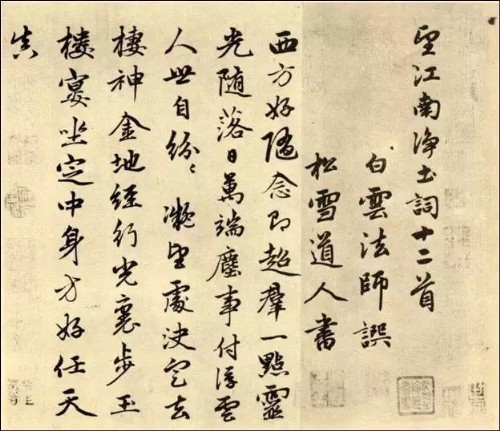 望江南淨土詞十二首
白雲法師譔
松雪道人書
西方好隨念即超羣一點靈
光隨落日萬端塵事付浮雲
人世自紛〻凝望處決定去
棲神金地經行光裏步玉
樓宴坐定中身方好任天
真